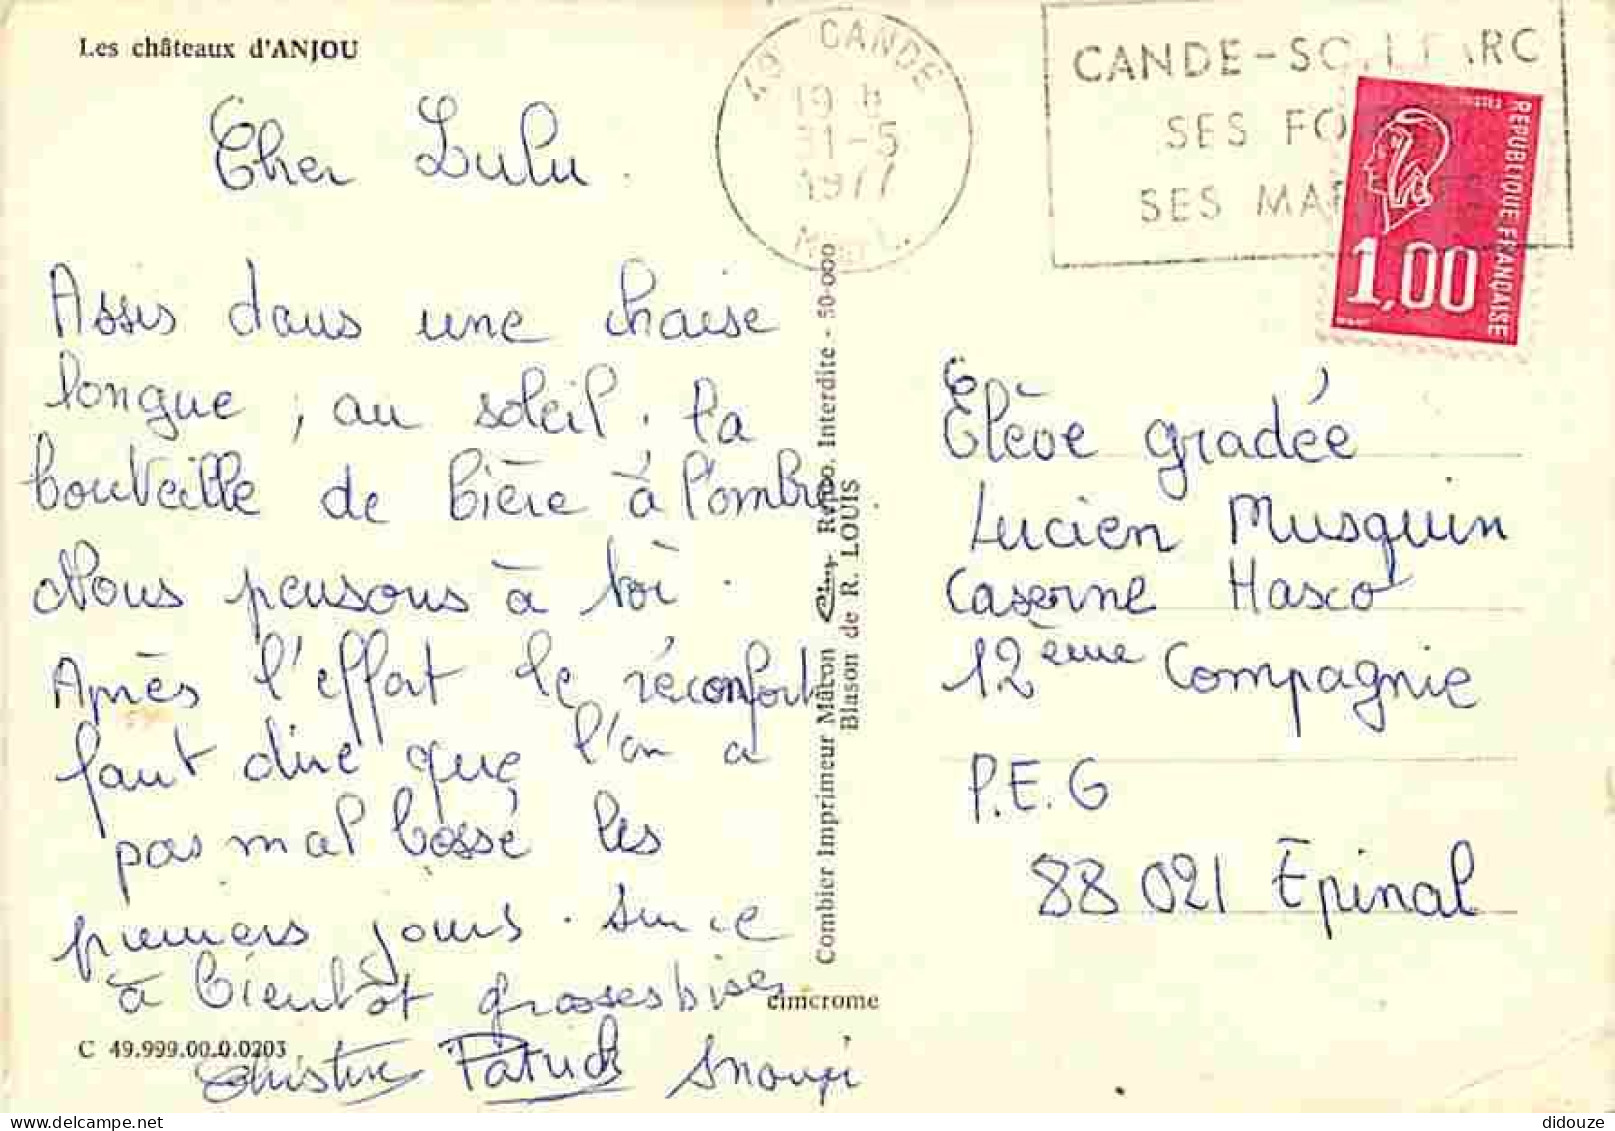 Les châteaux d'ANJOU
Cher Lulu.
Assis dans une chaise
longue, au soleil. la
bouteille de bière à l'ombre
Nous pensons à toi.
Après l'effort le réconfort
faut dire que l'on a
pas mal bossé les
premiers jours. Sur ce
à bientôt grosses bises
Christine Patrick
C 49.999.00.0.0203
cimcrome
Combier Imprimeur Mâcon Repro. Interdite - 50-000
Blason de R. LOUIS
49 CANDE
19 H
31-5
1977
CANDE-
SES
SES
REPUBLIQUE FRANÇAISE
POSTES
1,00
Elève gradée
Lucien Musquin
Caserne Hasco
12ème Compagnie
P.E.G
88021 Epinal
didouze